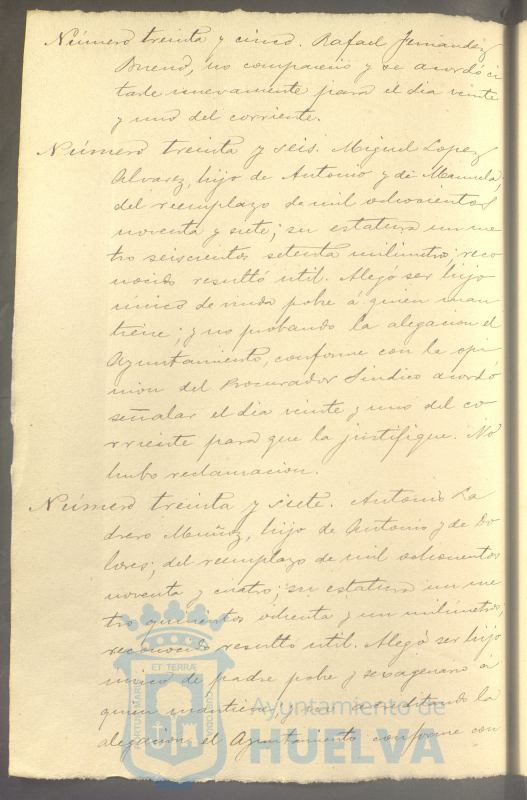 Número treinta y cinco. Rafael Fernandez
Bueno, no compareció y se acordó ci
tarle nuevamente para el dia veinte
y uno del corriente.
Número treinta y seis. Miguel Lopez
Alvarez, hijo de Antonio y de Manuela,
del reemplazo de mil ochocientos
noventa y siete; su estatura un me
tro seiscientos setenta milimetros; reco
nocido resultó util. Alegó ser hijo
único de viuda pobre á quien man
tiene; y no probando la alegacion el
Ayuntamiento, conforme con la opi
nion del Procurador Sindico acordó
señalar el dia veinte y uno del co
rriente para que la justifique. No
hubo reclamacion.
Número treinta y siete. Antonio La
drero Muñoz, hijo de Antonio y de Do
lores; del reemplazo de mil ochocientos
noventa y cuatro; su estatura un me
tro quinientos ochenta y un milimetros;
reconocido resultó util. Alegó ser hijo
unico de padre pobre y sexagenario á
quien mantiene, y no acreditando la
alegacion el Ayuntamiento conforme con
PORTUS MARIS
ET TERRÆ
CUSTODIA
Ayuntamiento de
HUELVA